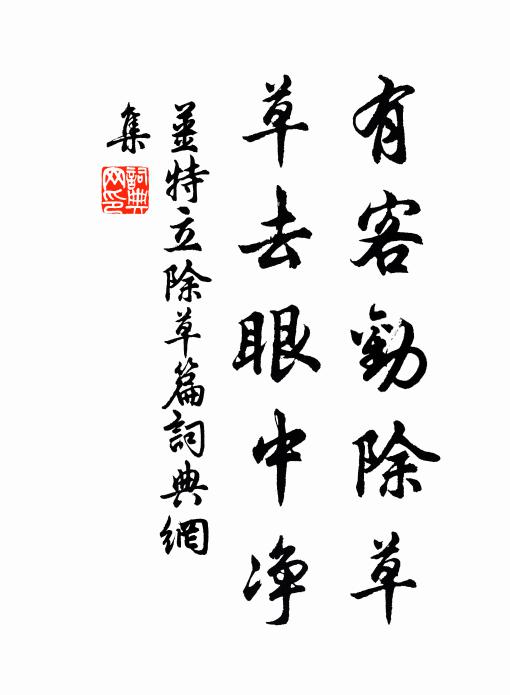 有客勸除草
草去眼中净
姜特立除草篇詞典網
集
詞典网印